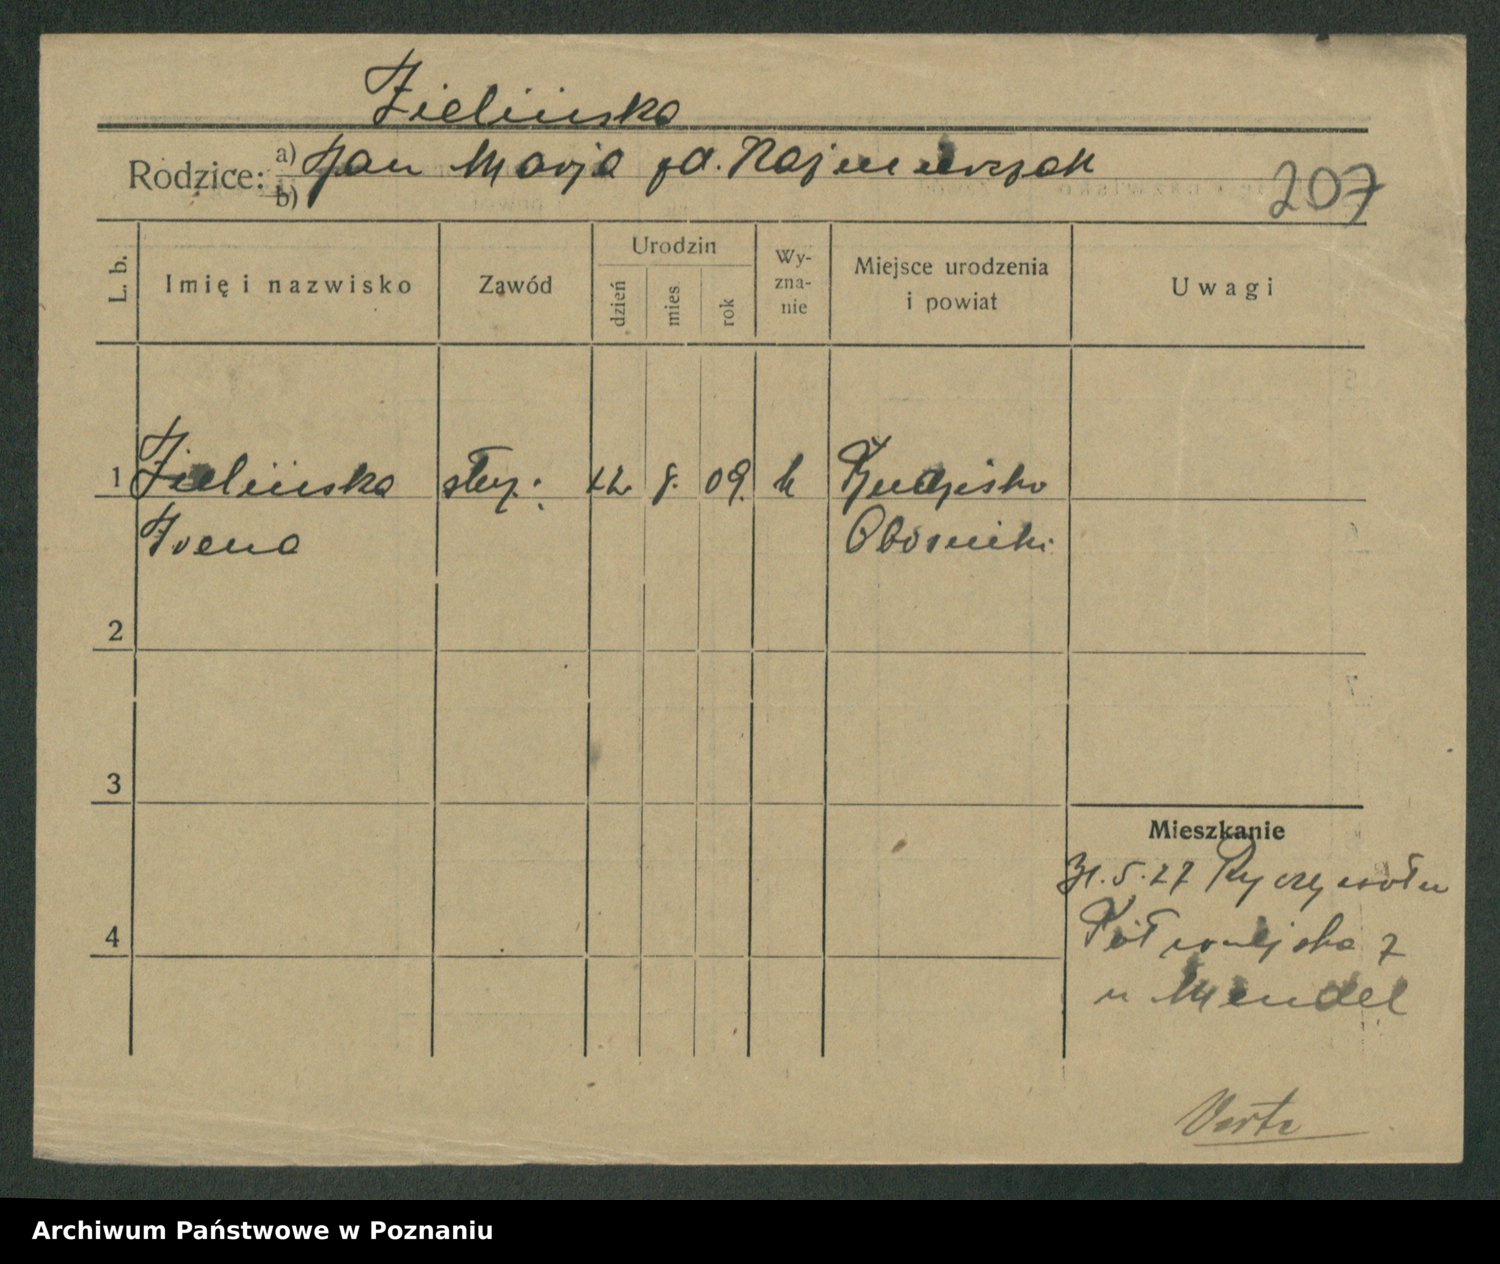 Zielińska
Rodzice: a) Jan Marja zd.
b)
207
L. b.
Imię i nazwisko
Zawód
Urodzin
dzień
mies
rok
Wy-
zna-
nie
Miejsce urodzenia
i powiat
Uwagi
1 Zielińska służ: 12. 8. 09. k
Irena Oborniki
2
3
4
Mieszkanie
31.5.27 Ryczywołu
7
u Mendel
Verte
Archiwum Państwowe w Poznaniu